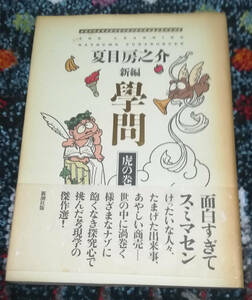 夏目房之介
新編
學問
虎の巻
面白すぎて
スミマセン
けったいな人々、
たまげた出来事、
あやしい商売―
世の中に渦巻く
様ざまなナゾに
飽くなき探究心で
挑んだ考現学の
傑作選!
新潮社版